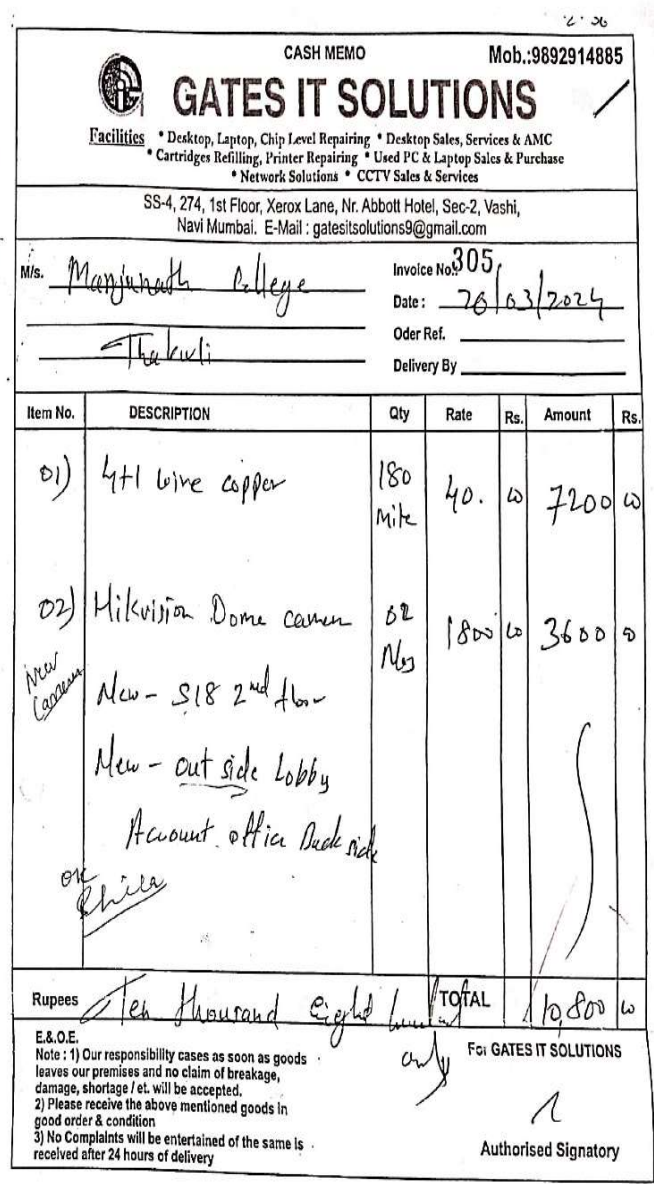 CASH MEMO
Mob.:9892914885
GATES IT SOLUTIONS
Facilities * Desktop, Laptop, Chip Level Repairing * Desktop Sales, Services & AMC
* Cartridges Refilling, Printer Repairing * Used PC & Laptop Sales & Purchase
* Network Solutions * CCTV Sales & Services
SS-4, 274, 1st Floor, Xerox Lane, Nr. Abbott Hotel, Sec-2, Vashi,
Navi Mumbai. E-Mail : gatesitsolutions9@gmail.com
M/s. Manjunath College
Invoice No.: 305
Date : 26/03/2024
Thakurli
Oder Ref.
Delivery By
Item No. DESCRIPTION Qty Rate Rs. Amount Rs.
01) 4+1 wire copper 180 40. 00 7200 00
Mtr
02) Hikvision Dome camera 02 1800 00 3600 00
Nos
New
Camera
New - S18 2nd floor
New - out side Lobby
Account office Back side
OK
Rupees Ten thousand Eight hundred only TOTAL 10,800 00
E.&.O.E.
Note : 1) Our responsibility cases as soon as goods
leaves our premises and no claim of breakage,
damage, shortage / et. will be accepted.
2) Please receive the above mentioned goods in
good order & condition
3) No Complaints will be entertained of the same is
received after 24 hours of delivery
For GATES IT SOLUTIONS
Authorised Signatory